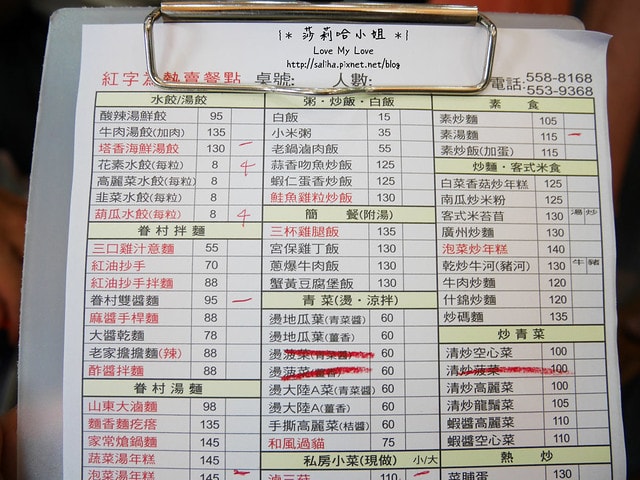 |* 莎莉哈小姐 *|
Love My Love
http://saliha.pixnet.net/blog
紅字為熱賣餐點 桌號: 人數:
電話: 558-8168
553-9368
水餃/湯餃
酸辣湯鮮餃 95
牛肉湯餃(加肉) 135
塔香海鮮湯餃 130 一
花素水餃(每粒) 8 4
高麗菜水餃(每粒) 8
韭菜水餃(每粒) 8
葫瓜水餃(每粒) 8 4
眷村拌麵
三口雞汁意麵 55
紅油抄手 70
紅油抄手拌麵 88
眷村雙醬麵 95 一
麻醬手桿麵 88
大醬乾麵 78
老家擔擔麵(辣) 88
酢醬拌麵 88
眷村湯麵
山東大滷麵 98
麵香麵疙瘩 135
家常熗鍋麵 145
蔬菜湯年糕 145
泡菜湯年糕 145
粥・炒飯・白飯
白飯 15
小米粥 35
老鍋滷肉飯 55
蒜香吻魚炒飯 125
蝦仁蛋香炒飯 125
鮭魚雞粒炒飯 130
簡 餐(附湯)
三杯雞腿飯 135
宮保雞丁飯 130
蔥爆牛肉飯 130
蟹黃豆腐煲飯 130
青菜(燙・涼拌)
燙地瓜葉(青菜醬) 60
燙地瓜葉(薑香) 60
燙菠菜(青菜醬) 60
燙菠菜(薑香) 60
燙大陸A菜(青菜醬) 60
燙大陸A(薑香) 60
手撕高麗菜(桔醬) 60
和風過貓 75
私房小菜(現做) 小/大
滷三菇 110
素 食
素炒麵 105
素湯麵 115 一
素炒飯(加蛋) 115
炒麵・客式米食
白菜香菇炒年糕 125
南瓜炒米粉 125
客式米苔苜 130 湯 炒
廣州炒麵 130
泡菜炒年糕 140
乾炒牛河(豬河) 130 牛 豬
牛肉炒麵 120
什錦炒麵 120
炒碼麵 135
炒青菜
清炒空心菜 100
清炒菠菜 100
清炒高麗菜 100
清炒龍鬚菜 105
蝦醬高麗菜 110
蝦醬空心菜 110
熱 炒
菜脯蛋 130